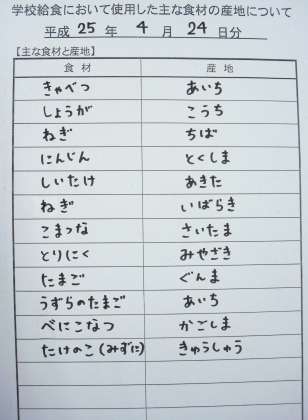 学校給食において使用した主な食材の産地について
平成 25 年 4 月 24 日分
【主な食材と産地】
食材 産地
きゃべつ あいち
しょうが こうち
ねぎ ちば
にんじん とくしま
しいたけ あきた
ねぎ いばらき
こまつな さいたま
とりにく みやざき
たまご ぐんま
うずらのたまご あいち
べにこなつ かごしま
たけのこ(みずに) きゅうしゅう